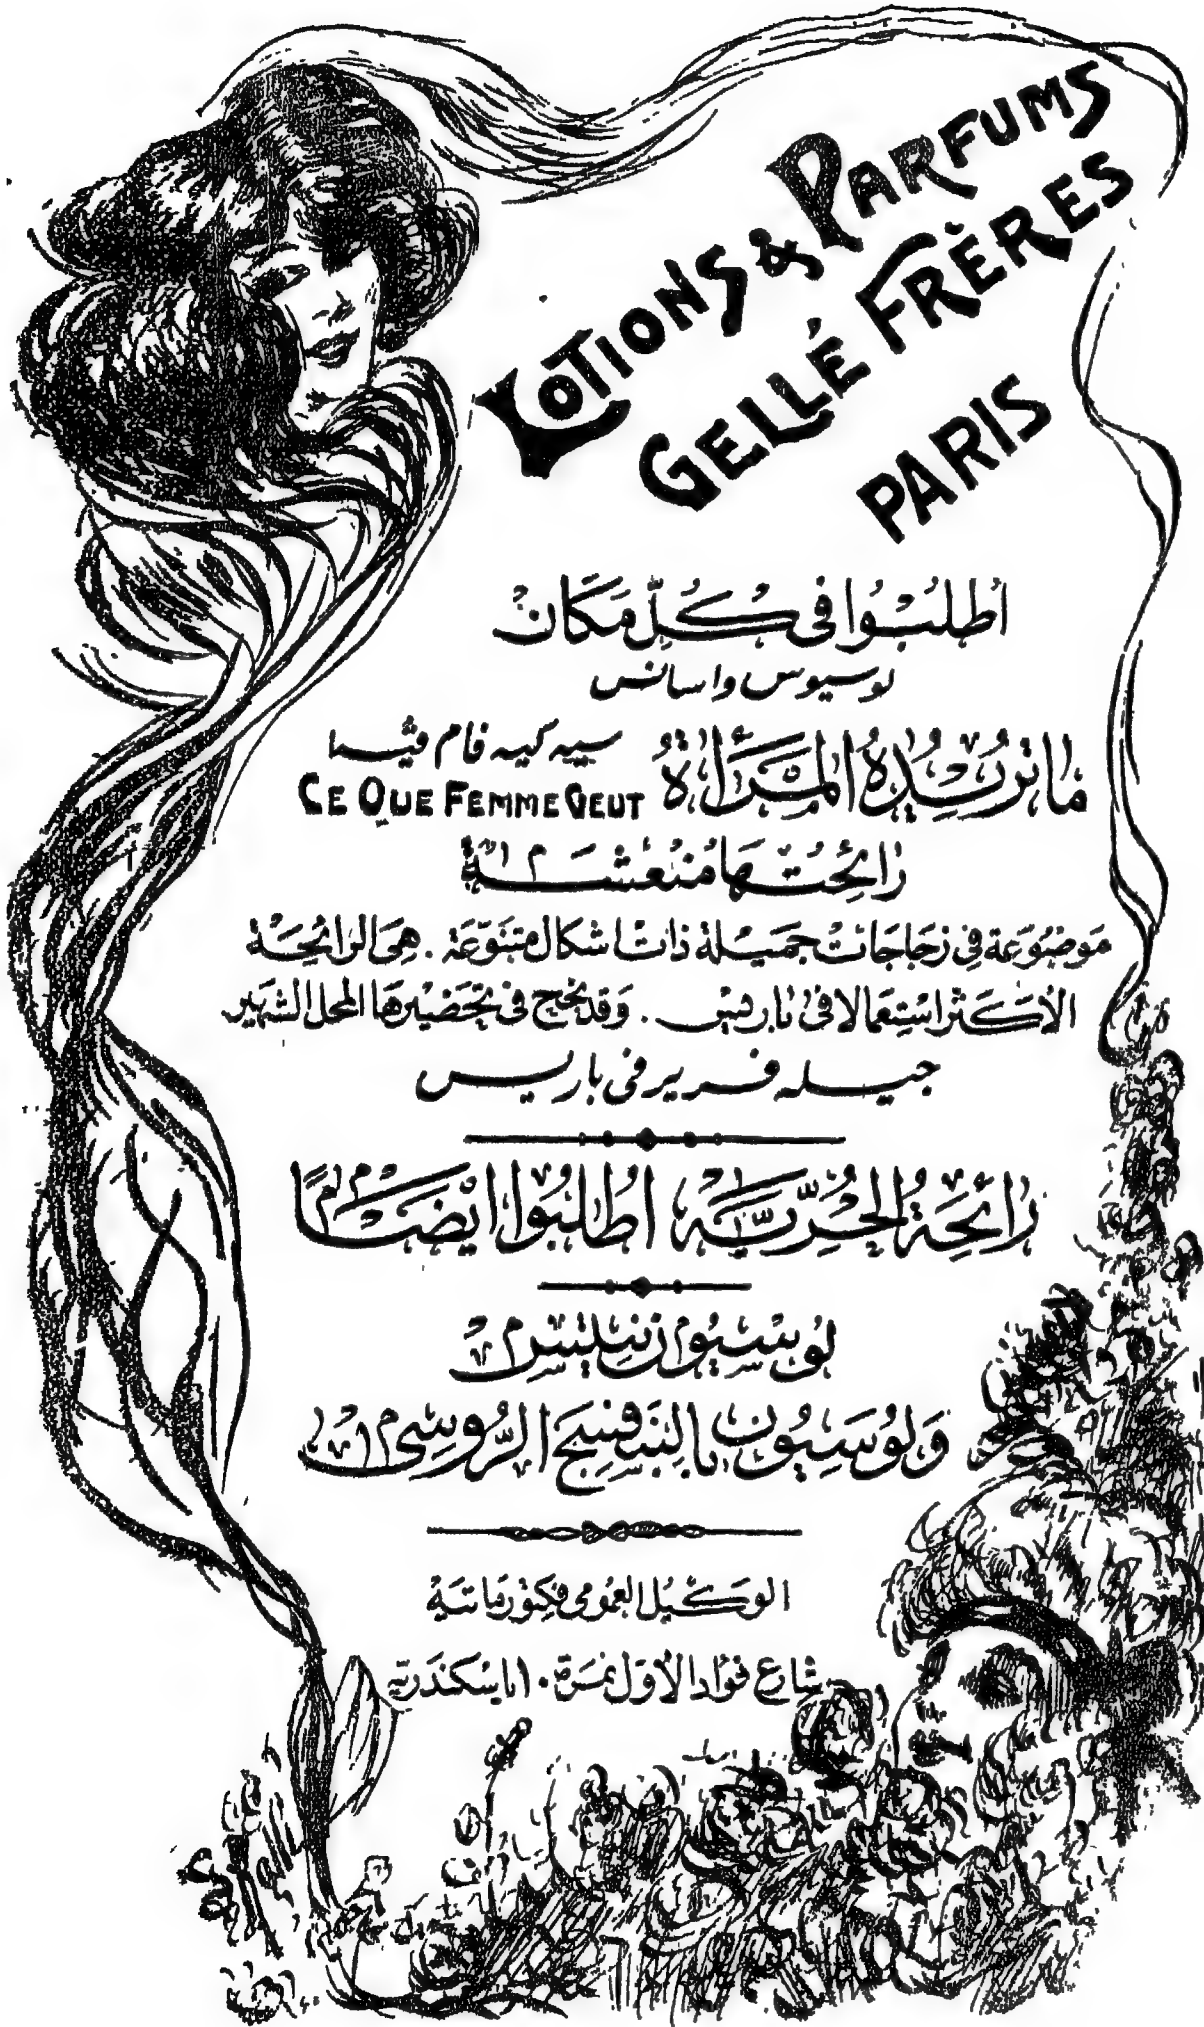 LOTIONS & PARFUMS
GELLÉ FRÈRES
PARIS
اطلبوا في كل مكان
لوسيوس واسانس
ما تريده المرأة
سييه كيه فام فيه
CE QUE FEMME VEUT
رائحتها منعشة
موضوعة في زجاجات جميلة ذات اشكال متنوعة . هي الرائحة
الاكثر استعمالا في باريس . وقد نجح في تحضيرها المحل الشهير
جيله فرير في باريس
رائحة الحرية اطلبوا ايضا
لوسيون نيليس
ولوسيون بالبنفسج الروسي
الوكيل العمومي فكتور ماتتية
شارع فؤاد الأول نمرة ١٠ باسكندرية